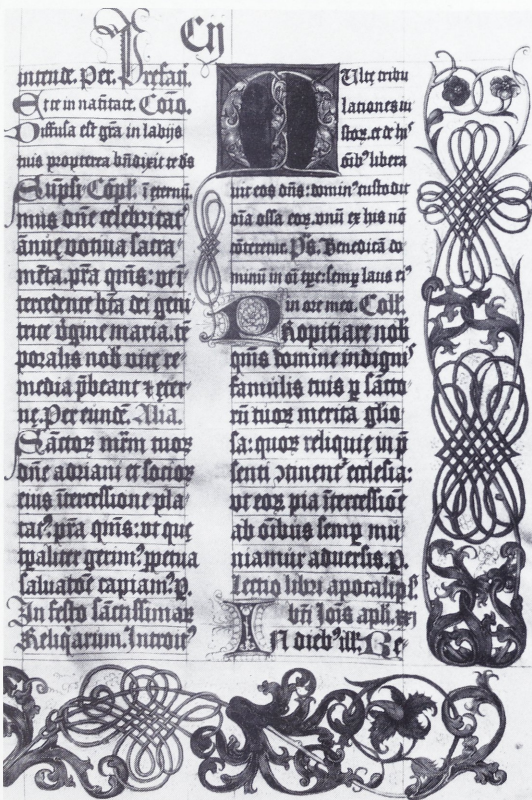 Cij
intende. Per. Prefac̄.
Et te in natītate. Com̄o.
Diffusa est gr̄a in labijs
tuis propterea bn̄dixit te ds̄
Sūpsi Cōpl. ī eternū.
mus dn̄e celebritat᷒
ānue votiua sacra
mēta. pr̄a qm̄s: vt ī
tercedente bt̄a dei geni
trice v̄gine maria. tē
poralis nob̄ vite re
media p̄beant ⁊ eter
ne. Per eundē. Alia.
Sanctoꝝ mr̄m tuoꝝ
dn̄e adriani et socioꝝ
eius ītercessione pla
cat᷒. pr̄a qm̄s: vt que
tꝑaliter gerim᷒ ꝑpetua
saluatoē capiam᷒. P.
In festo sanctissimaꝝ
Reliqꝛarum. Introit᷒
Multe tribu
lationes iu
stoꝝ. et de hijs
ōib᷒ libera
uit eos dn̄s: domin᷒ custodit
oīa ossa eoꝝ. vnū ex his nō
cōteretur. Ps̄. Benedicā do
minū in oī tp̄e: semꝑ laus ei᷒
in ore meo. Coll̄.
Propitiare nob̄
qm̄s domine indigni᷒
famulis tuis ꝑ sācto
rū tuoꝝ merita glio
sa: quoꝝ reliquie in p̄
senti ꝯtinent᷒ ecclesia:
vt eoꝝ pia ītercessiōe
ab oībus semꝑ mu
niamur aduersis. P.
Lectio libri apocalips̄.
bt̄i Joīs apl̄i.
In dieb᷒ ill̄. Be